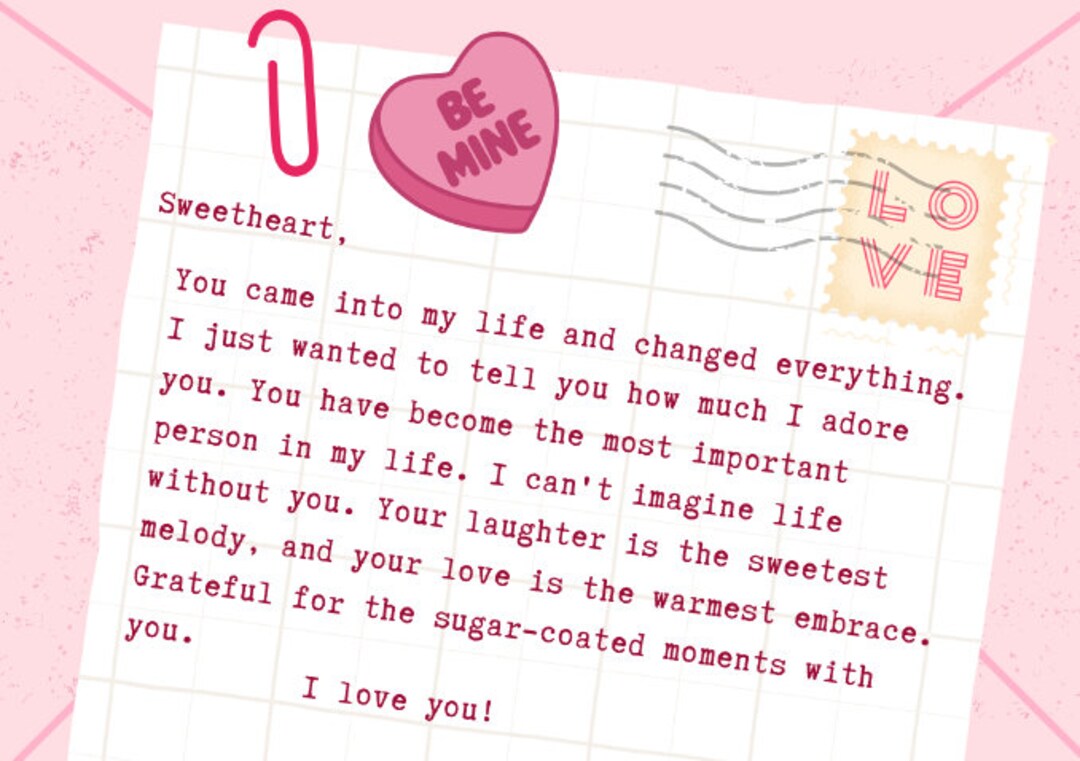 BE
MINE
LO
VE
Sweetheart,
You came into my life and changed everything.
I just wanted to tell you how much I adore
you. You have become the most important
person in my life. I can't imagine life
without you. Your laughter is the sweetest
melody, and your love is the warmest embrace.
Grateful for the sugar-coated moments with
you.
I love you!